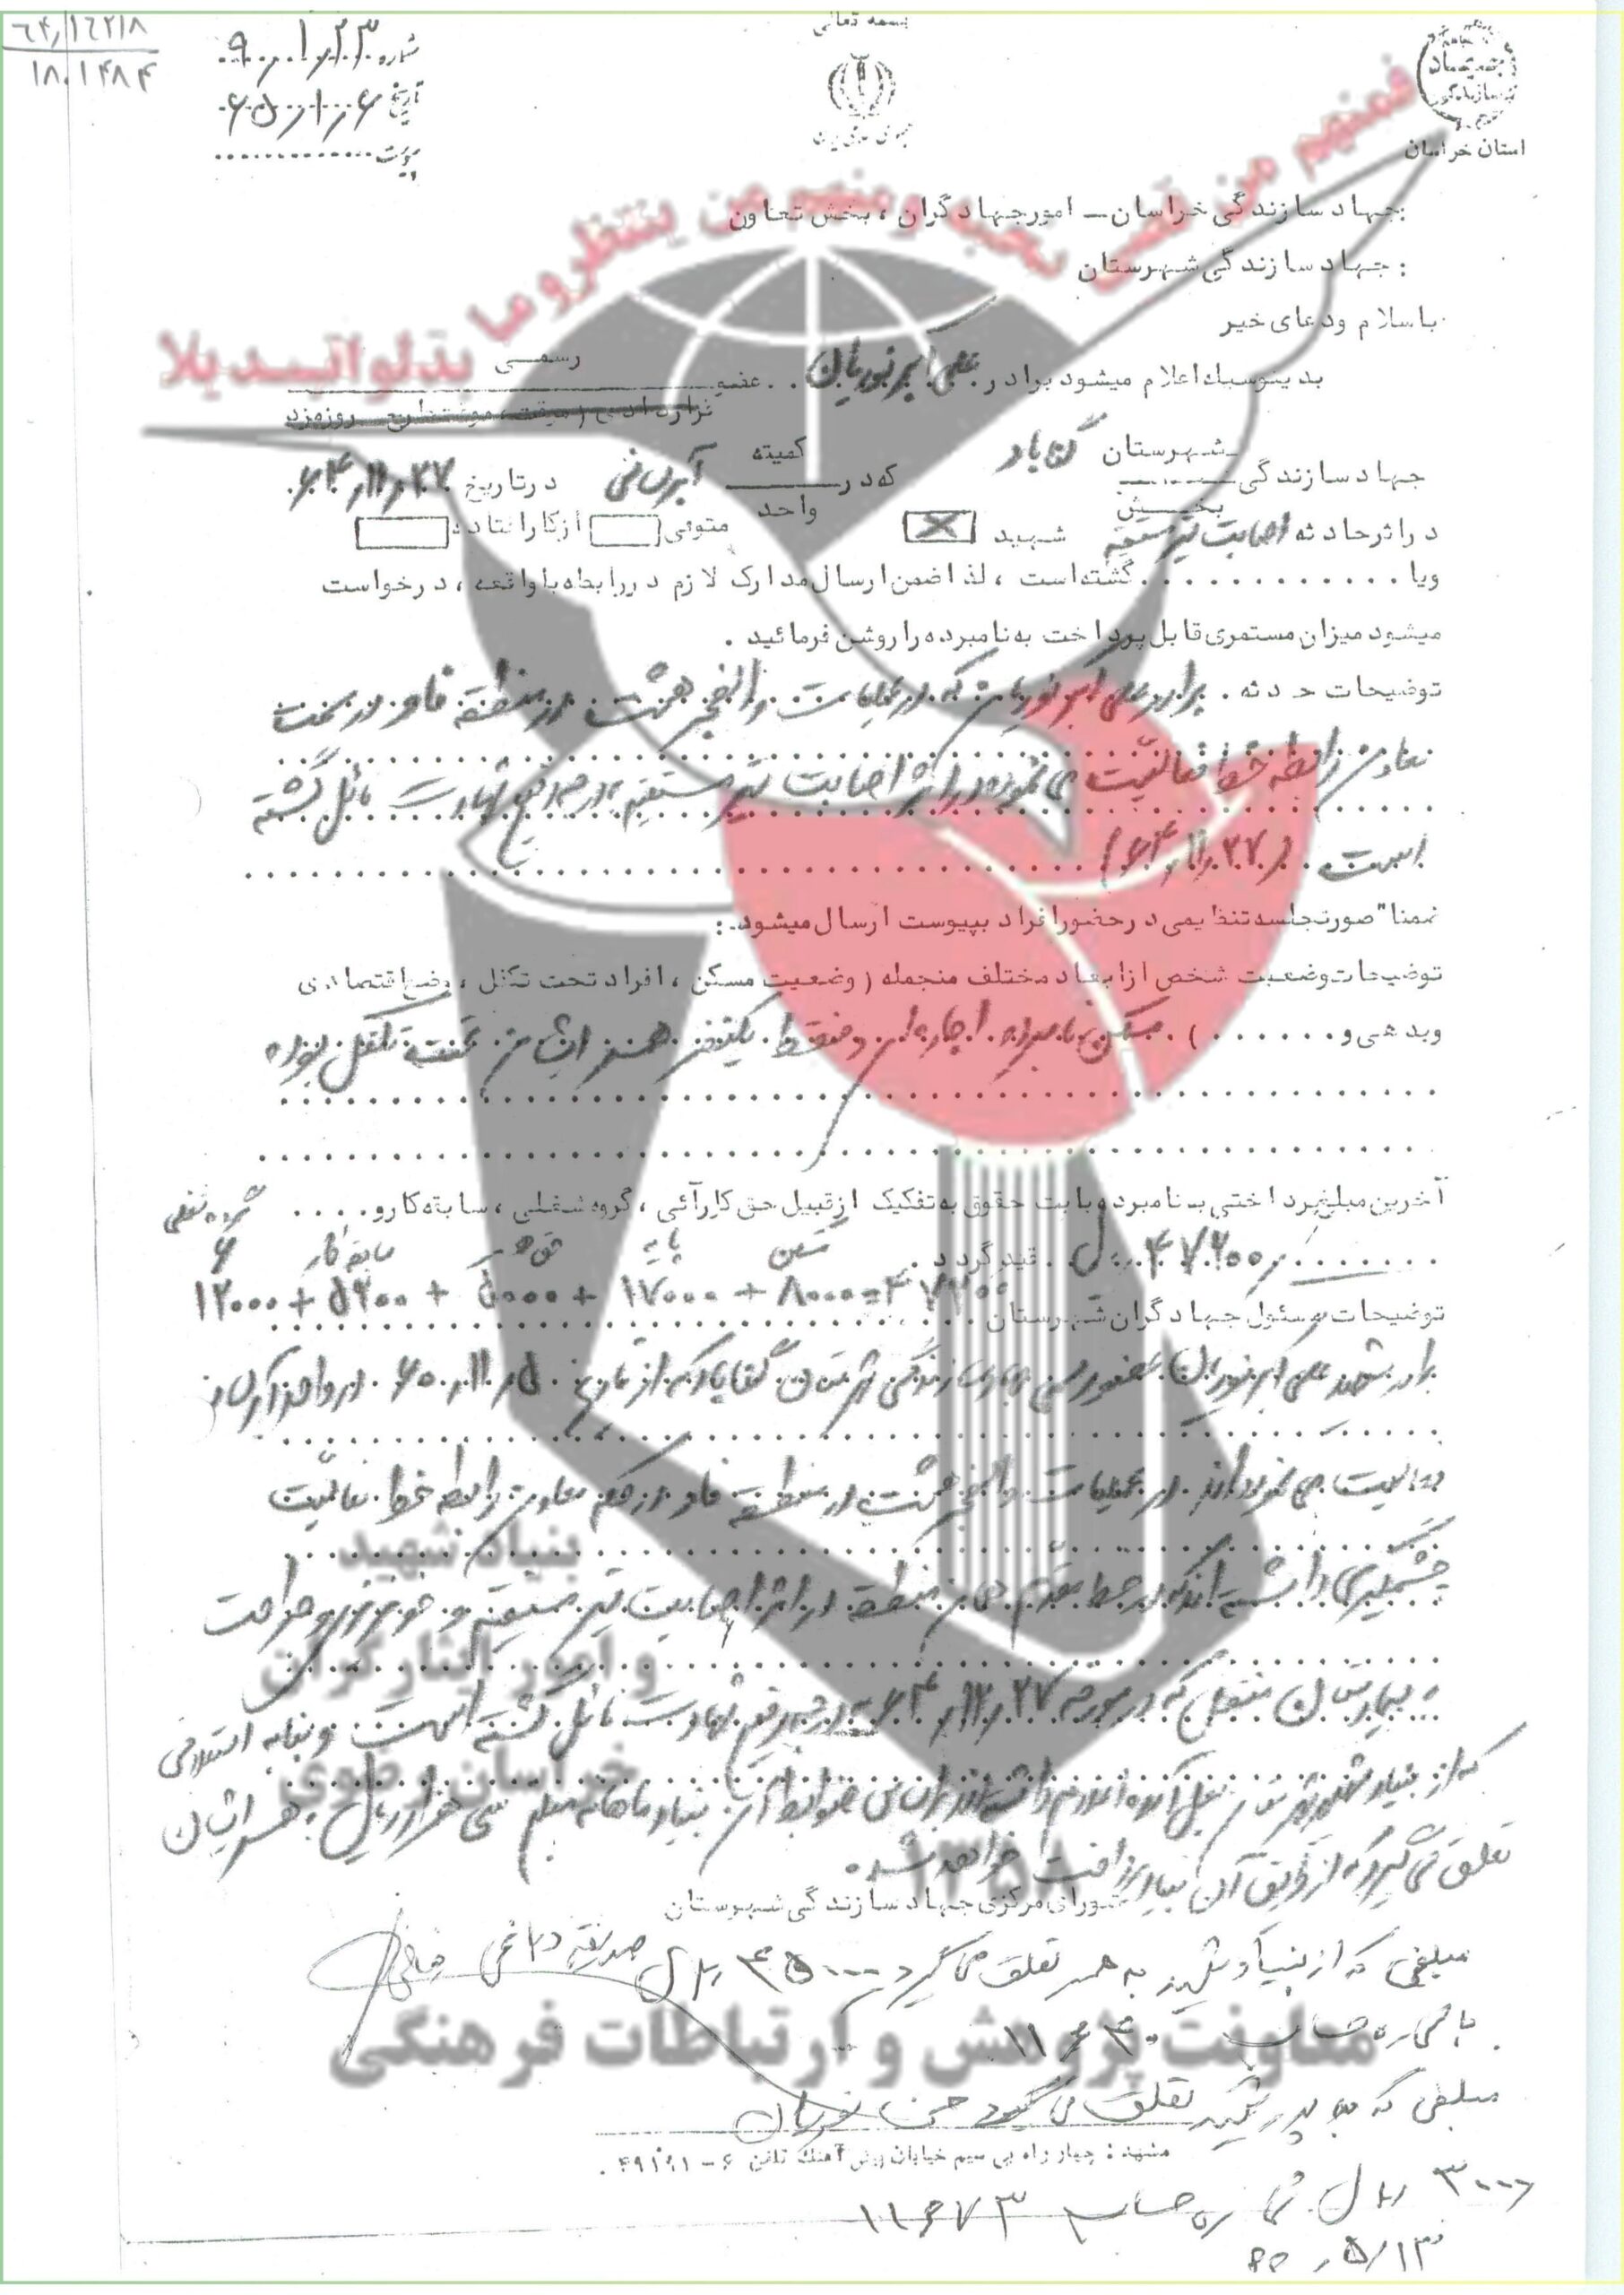 بسمه تعالی
۶۴٫۱۶۲۱۸
۱۸۰۱۴۸۴
شماره ۹۰۰۱۰۲۳
تاریخ ۶۵٫۱٫۶
پیوست
جهاد سازندگی
استان خراسان
جمهوری اسلامی ایران
فمنهم من قضی نحبه و منهم من ینتظر و ما بدلوا تبدیلا
جهاد سازندگی خراسان – امور جهادگران ، بخش تعاون
: جهاد سازندگی شهرستان
باسلام ودعای خیر
بدینوسیله اعلام میشود برادر علی اکبر نوریان عضو رسمی
قراردادی روزمزد
جهاد سازندگی شهرستان بخش گناباد که در کمیته واحد آبرسانی در تاریخ ۶۴٫۱۱٫۲۷
در اثر حادثه اصابت تیر مستقیم شهید ☒ متوفی ☐ ازکارافتاده ☐
ویا . . . . گشته است ، لذا ضمن ارسال مدارک لازم در رابطه با واقعه ، درخواست
میشود میزان مستمری قابل پرداخت به نامبرده را روشن فرمائید .
توضیحات حادثه . برادر علی اکبر نوریان که در عملیات والفجر هشت در منطقه فاو در سمت
معاون رابط خط فعالیت می نموده در اثر اصابت تیر مستقیم به درجه رفیع شهادت نائل گشته
است . (۶۴٫۱۱٫۲۷)
ضمنا" صورتجلسه تنظیمی در حضور افراد بپیوست ارسال میشود :
توضیحات وضعیت شخص از ابعاد مختلف منجمله ( وضعیت مسکن ، افراد تحت تکفل ، وضع اقتصادی
وبدهی و . . . . ) . مسکن نامبرده اجاره ای و فقط یکنفر همسر ایشان تحت تکفل بوده
آخرین مبلغ پرداختی بنامبرده بابت حقوق به تفکیک از قبیل حق کارآئی ، گروه شغلی ، سابقه کار و . . . .
۴۷۲۰۰ ریال . قید گردد .
گروه شغلی ۶ سابقه کار پایه مسکن
۱۲۰۰۰ + ۵۲۰۰ + ۵۰۰۰ + ۱۷۰۰۰ + ۸۰۰۰ = ۴۷۲۰۰
توضیحات مسئول جهادگران شهرستان
برادر شهید علی اکبر نوریان عضو رسمی جهاد سازندگی شهرستان گناباد که از تاریخ ۶۰٫۱۱٫۵ در واحد آبرسانی
فعالیت می نموده اند در عملیات والفجر هشت در منطقه فاو در سمت معاون رابط خط فعالیت
چشمگیری داشته اند که در خط مقدم منطقه در اثر اصابت تیر مستقیم و خونریزی و جراحت
به بیمارستان منتقل که در مورخه ۶۴٫۱۱٫۲۷ به درجه رفیع شهادت نائل گشته است و بنا به استعلامی
که از بنیاد شهید شهرستان بعمل آمده اعلام داشته اند بر اساس ضوابط آن بنیاد ماهانه مبلغ سی هزار ریال به همسر ایشان
تعلق می گیرد که از طریق آن بنیاد پرداخت خواهد شد .
شورای مرکزی جهاد سازندگی شهرستان
مبلغی که از بنیاد شهید به همسر تعلق می گیرد ۴۵۰۰۰ ریال صدیقه
با شماره حساب ۱۱۶۴۰
مبلغی که به پدر شهید تعلق می گیرد حسن نوریان
مشهد : چهار راه بی سیم خیابان پیش آهنگ تلفن ۶ – ۴۹۱۹۱ .
۳۰۰۰۰ ریال شماره حساب ۱۱۶۷۳
۶۵٫۵٫۱۳
بنیاد شهید
و امور ایثارگران
خراسان رضوی
۱۳۵۸
معاونت پژوهش و ارتباطات فرهنگی